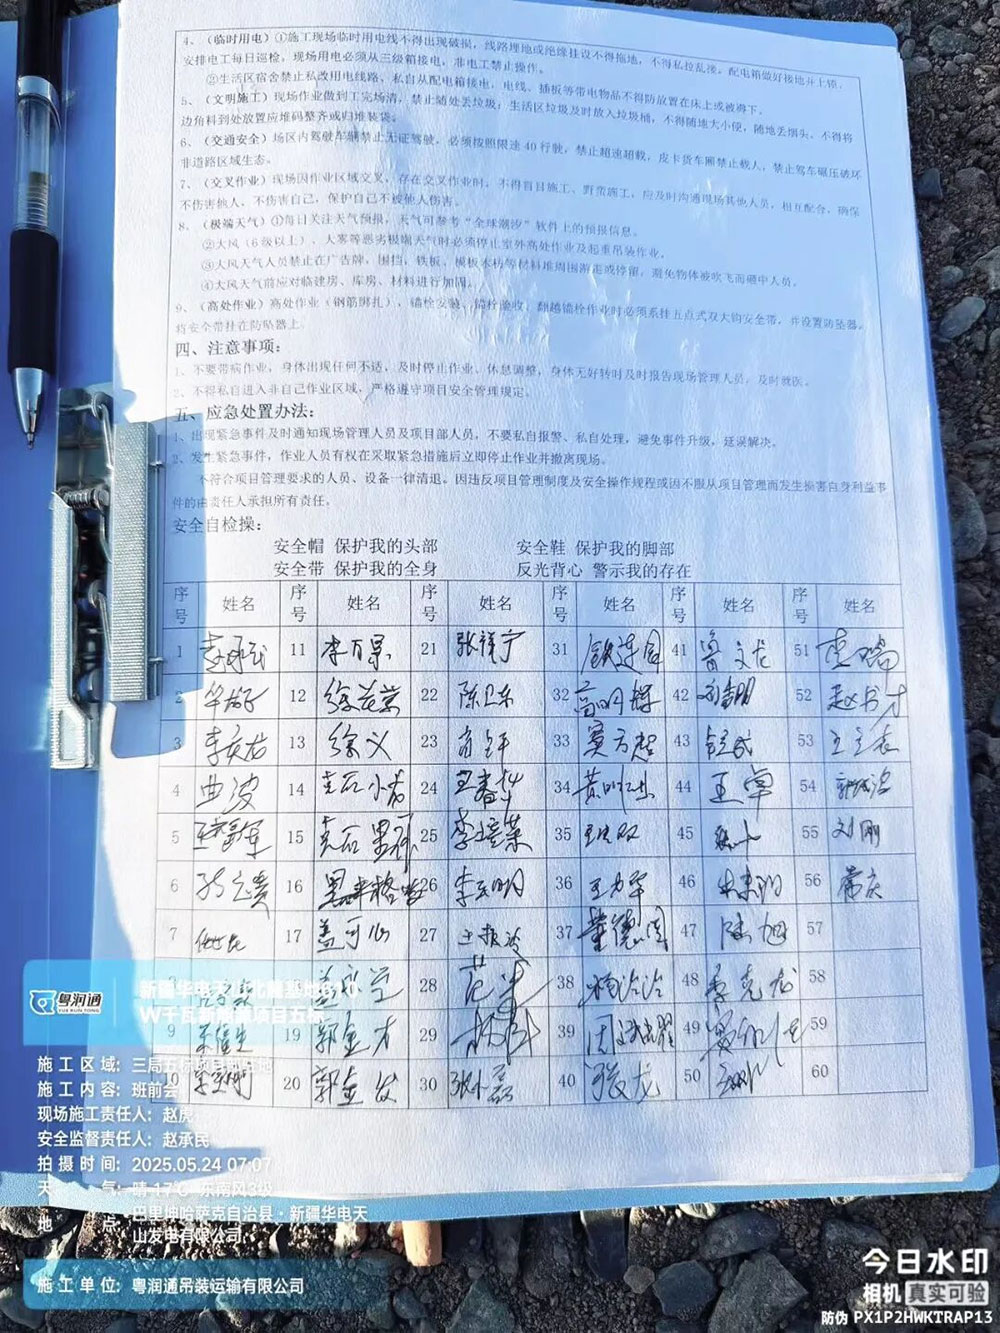 4、（临时用电）①施工现场临时用电线不得出现破损，线路埋地或绝缘挂设不得拖地，不得私拉乱接，配电箱做好接地并上锁，
安排电工每日巡检，现场用电必须从三级箱接电，非电工禁止操作。
②生活区宿舍禁止私改用电线路、私自从配电箱接电，电线、插板等带电物品不得防放置在床上或被褥下。
5、（文明施工）现场作业做到工完场清，禁止随处丢垃圾；生活区垃圾及时放入垃圾桶，不得随地大小便，随地丢烟头、不得将
边角料到处放置应堆码整齐或归堆装袋。
6、（交通安全）场区内驾驶车辆禁止无证驾驶，必须按照限速40行驶，禁止超速超载，皮卡货车厢禁止载人，禁止驾车碾压破坏
非道路区域生态。
7、（交叉作业）现场因作业区域交叉，存在交叉作业时，不得盲目施工、野蛮施工，应及时沟通现场其他人员，相互配合，确保
不伤害他人，不伤害自己，保护自己不被他人伤害。
8、（极端天气）①每日关注天气预报，天气可参考“全球潮汐”软件上的预报信息。
②大风（6级以上）、大雾等恶劣极端天气时必须停止室外高处作业及起重吊装作业。
③大风天气人员禁止在广告牌，围挡，铁板，模板木枋等材料堆周围游走或停留，避免物体被吹飞而砸中人员。
④大风天气前应对临建房、库房、材料进行加固。
9、（高处作业）高处作业（钢筋绑扎），锚栓安装、锚栓验收，翻越锚栓作业时必须系挂五点式双大钩安全带，并设置防坠器，
将安全带挂在防坠器上。
四、注意事项：
1、不要带病作业，身体出现任何不适，及时停止作业、休息调整，身体无好转时及时报告现场管理人员，及时就医。
2、不得私自进入非自己作业区域，严格遵守项目安全管理规定。
五、应急处置办法：
1、出现紧急事件及时通知现场管理人员及项目部人员，不要私自报警、私自处理，避免事件升级，延误解决。
2、发生紧急事件，作业人员有权在采取紧急措施后立即停止作业并撤离现场。
不符合项目管理要求的人员、设备一律清退。因违反项目管理制度及安全操作规程或因不服从项目管理而发生损害自身利益事
件的由责任人承担所有责任。
安全自检操：
安全帽 保护我的头部 安全鞋 保护我的脚部
安全带 保护我的全身 反光背心 警示我的存在
序号 姓名 序号 姓名 序号 姓名 序号 姓名 序号 姓名 序号 姓名
1 11 李万景 21 张祥宁 31 铁连园 41 鲁文龙 51 李瑞
2 12 徐益堂 22 陈卫东 32 高明辉 42 52 赵书才
3 李安龙 13 徐义 23 33 43 53 王立表
4 曲波 14 克石小芳 24 王春华 34 44 王卓 54
5 15 克石里 25 李培荣 35 45 55 刘刚
6 16 26 李玉明 36 王力军 46 56 常庆
7 17 盖可心 27 37 董德国 47 陆旭 57
28 范 38 杨冷冷 48 李克龙 58
9 19 郭金才 29 39 49 59
10 20 郭金发 30 张小磊 40 张龙 50 60
粤润通
YUE RUN TONG
新疆华电天山北麓基地610
W千瓦新能源项目五标
施工区域：三局五标项目部驻地
施工内容：班前会
现场施工责任人：赵虎
安全监督责任人：赵承民
拍摄时间：2025.05.24 07:07
天气：晴 17℃ 东南风3级
地点：巴里坤哈萨克自治县·新疆华电天
山发电有限公司
施工单位：粤润通吊装运输有限公司
今日水印
相机 真实可验
防伪 PX1P2HWKTRAP13